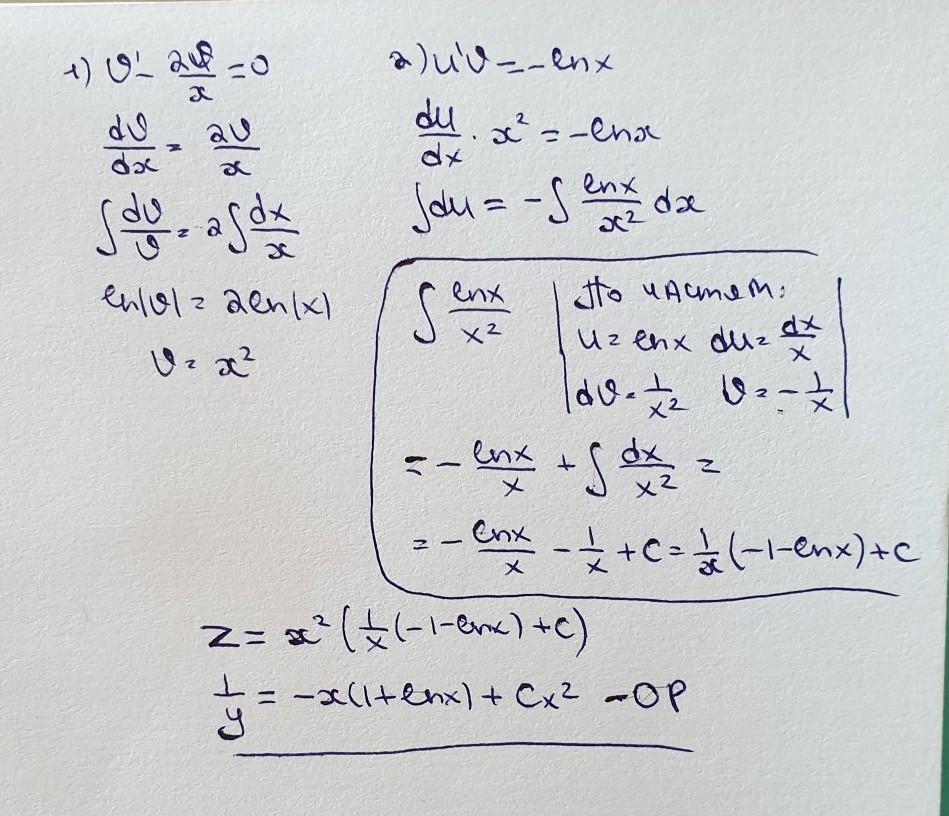 1) v' - 2v/x = 0
dv/dx = 2v/x
∫ dv/v = 2∫ dx/x
ln|v| = 2ln|x|
v = x²
2) u'v = -lnx
du/dx · x² = -lnx
∫du = -∫ lnx/x² dx
∫ lnx/x² | По частям:
u = lnx du = dx/x
dv = 1/x² v = -1/x |
= - lnx/x + ∫ dx/x² =
= - lnx/x - 1/x + C = 1/x (-1-lnx) + C
z = x² (1/x (-1-lnx) + C)
1/y = -x(1+lnx) + Cx² - ОР